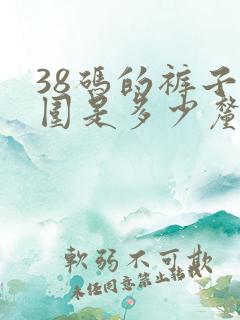 38碼的裤子
围是多少釐
軟弱不可欺
未经同意禁止转载